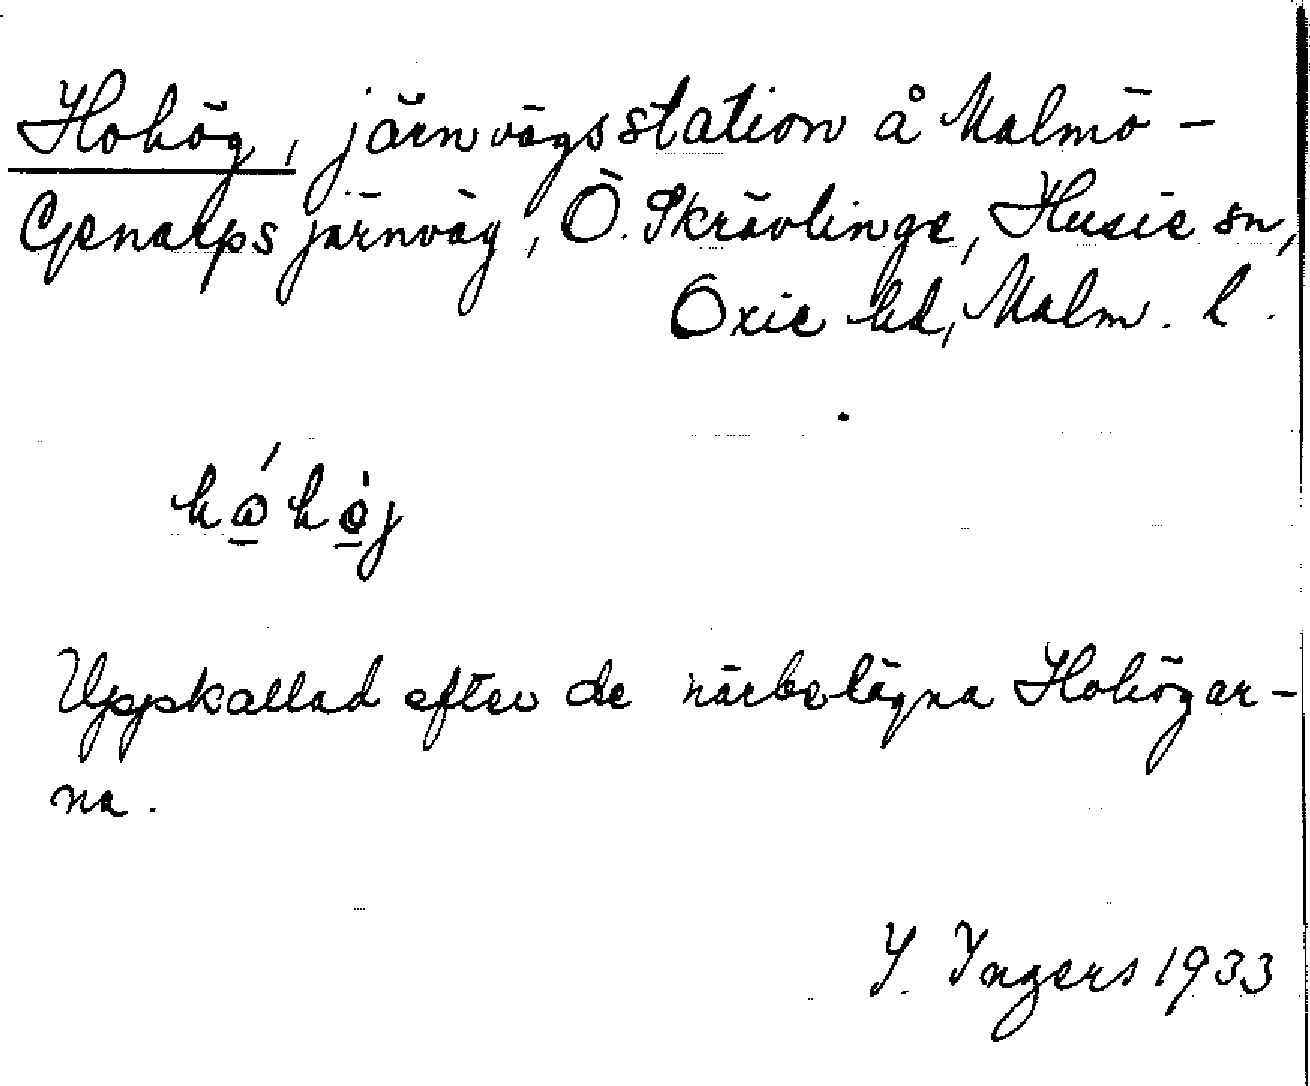 Hohög, järnvägsstation å Malmö-
Genarps järnväg, Ö. Skrävlinge, Husie sn,
Oxie hd, Malm. l.
Uppkallad efter de närbelägna Hohögar-
na.
I. Ingers 1933